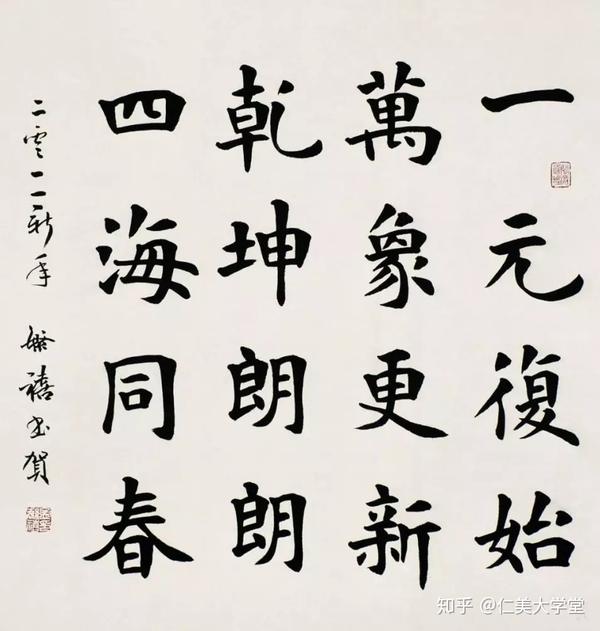 一元復始
萬象更新
乾坤朗朗
四海同春
二零一一新年 無禧書賀
知乎 @仁美大学堂